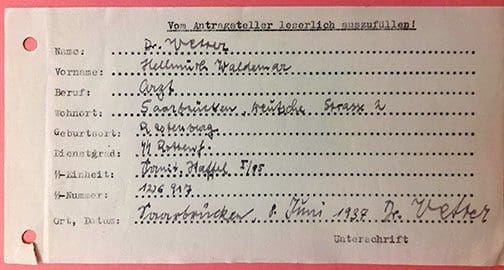 Vom Antragsteller leserlich auszufüllen!
Name: Dr. Vetter
Vorname: Hellmuth Waldemar
Beruf: Arzt
Wohnort: Saarbrücken, Deutsche Strasse 2
Geburtsort:
Dienstgrad: ᛋᛋ Rottenf.
ᛋᛋ-Einheit: Sanit. Staffel I/85
ᛋᛋ-Nummer: 126 917
Ort, Datum: Saarbrücken 8. Juni 1937 Dr. Vetter
Unterschrift